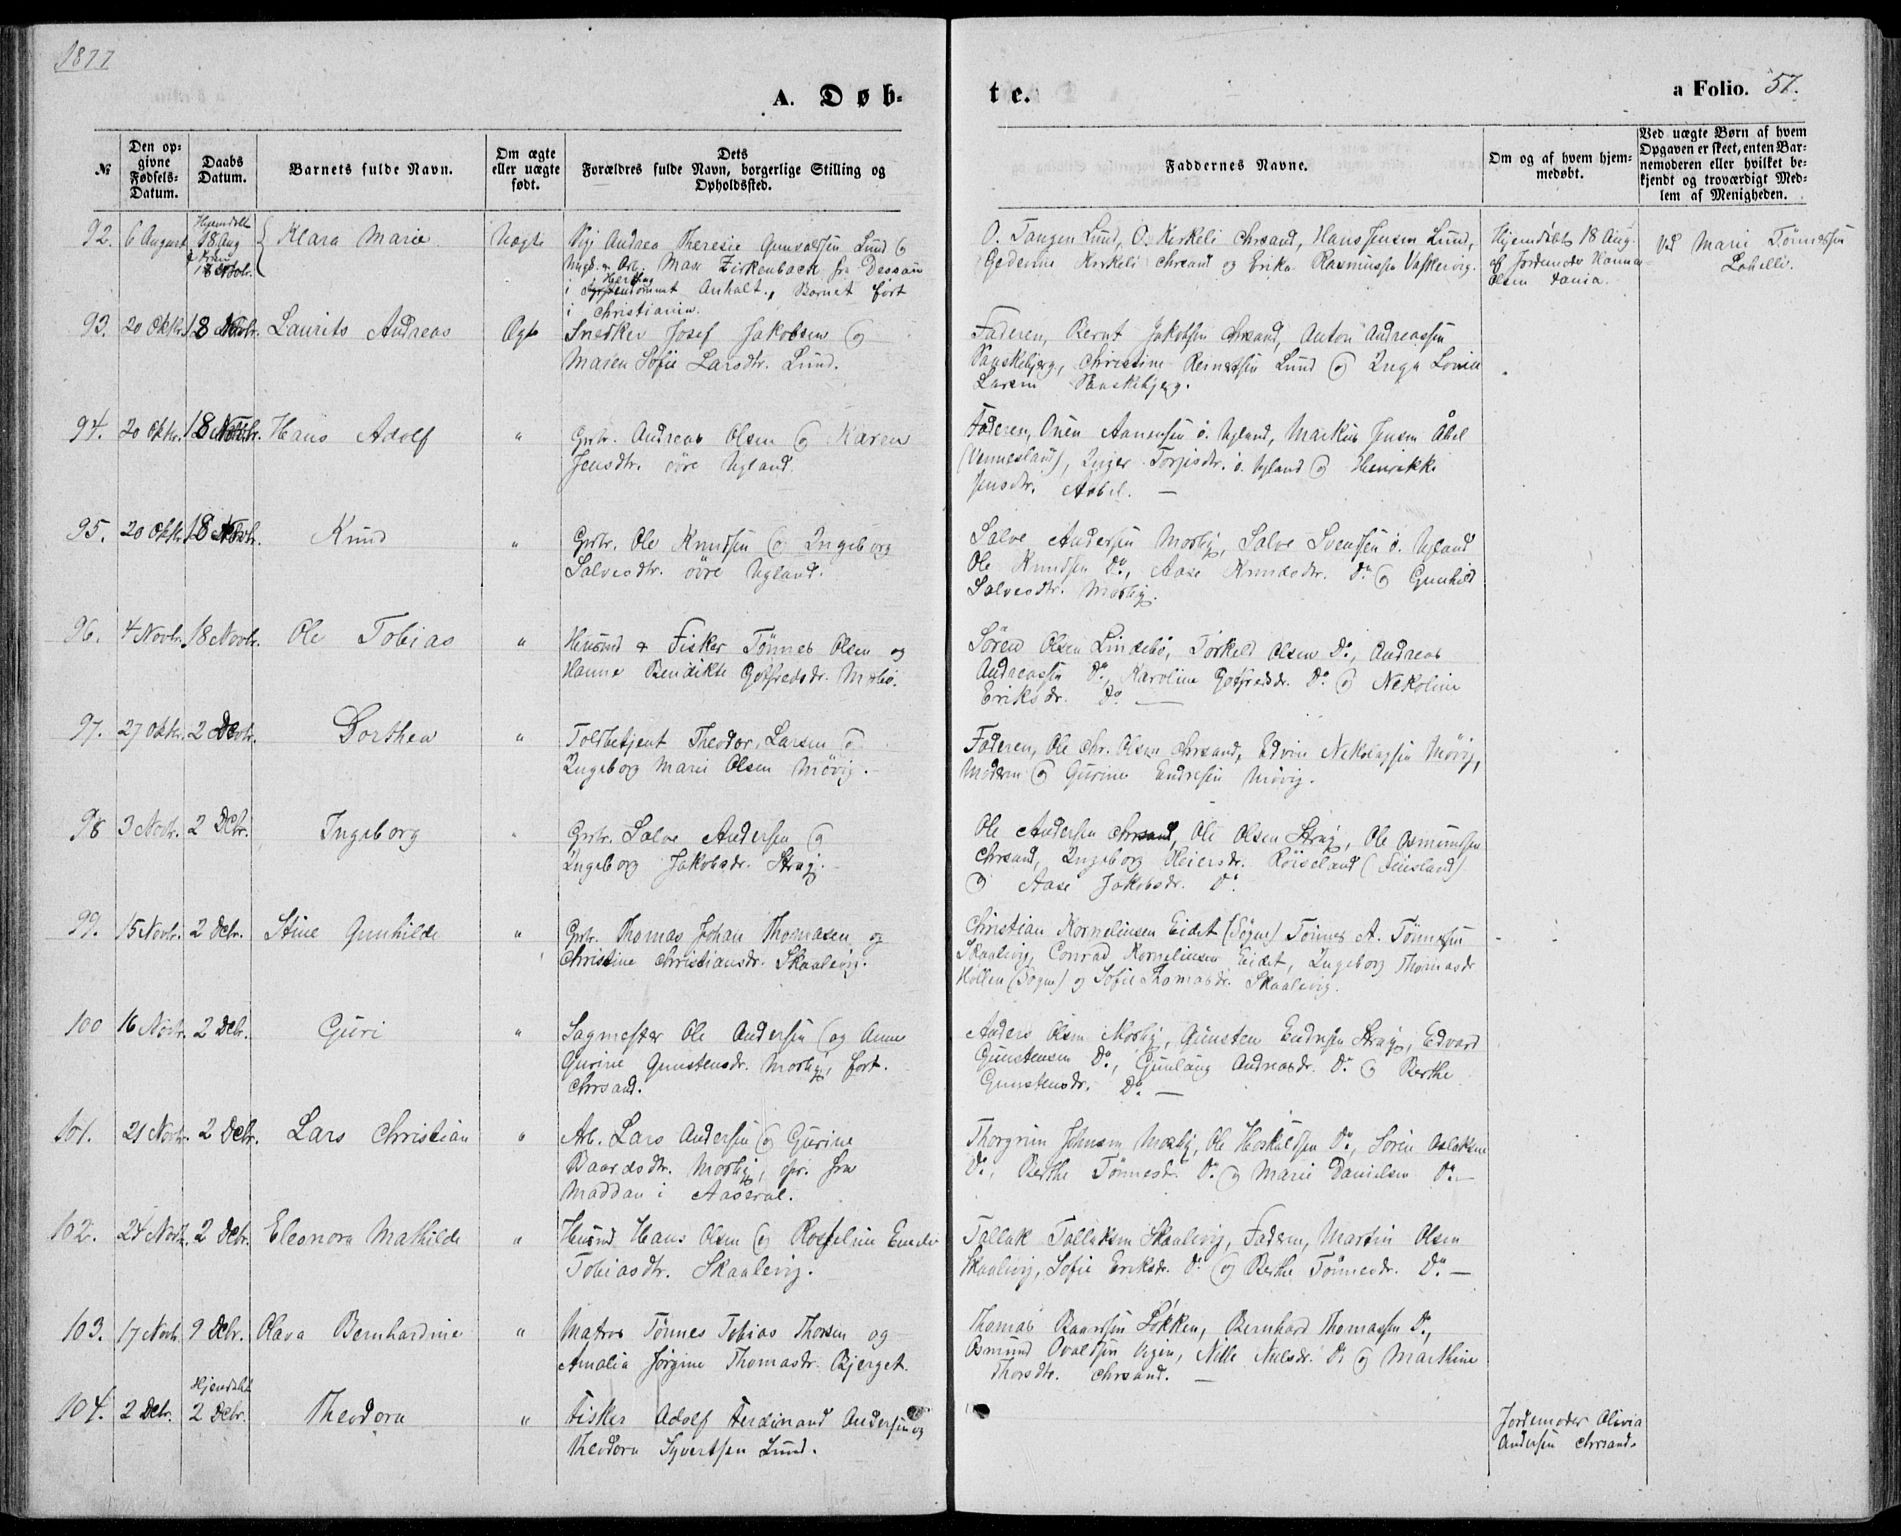 1877
A. Døb-
te.
a Folio. 57.
№
Den op-
givne
Fødsels-
Datum.
Daabs
Datum.
Barnets fulde Navn.
Om ægte
eller uægte
født.
Dets
Forældres fulde Navn, borgerlige Stilling og
Opholdssted.
Faddernes Navne.
Om og af hvem hjem-
medøbt.
Ved uægte Børn af hvem
Opgaven er skeet, enten Bar-
nemoderen eller hvilket be-
kjendt og troværdigt Med-
lem af Menigheden.
92. 6 August Hjemdøbt 18 Aug 18 Novbr. Klara Marie Uægte
Pige Andrea Theresie Gunvaldsen Lund &
Ungk. Arb. Max Zirkenbach fra Dessau
i Hertugdømmet Anhalt., Barnet født
i Christiania.
O. Tangen Lund, O. Kirkeli Chrsand, Hans Jensen Lund,
Gedvine Kirkeli Chrsand og Erika Rasmussen Vaskervig.
Hjemdøbt 18 Aug.
af Jordemoder Hanna
Olsen Dania.
Ved Marie Tønnessen
Lahelle.
93. 20 Oktbr. 18 Novbr. Laurits Andreas Ægte
Snedker Josef Jakobsen og
Maren Sofie Larsdtr. Lund.
Faderen, Bernt Jakobsen Chrsand, Anton Andreassen
Vaaskebjerg, Christine Berntsen Lund og Inga Lovise
Larsen Vaaskebjerg.
94. 20 Oktbr. 18 Novbr. Hans Adolf "
Grbr. Andreas Olsen og Karen
Jensdtr. øvre Ugland.
Faderen, Onen Aanensen ö. Ugland, Markus Jensen Åbel
(Vennesland), Inger Torjisdtr. ö. Ugland og Henrikke
Jensdtr. Aabel. —
95. 20 Oktbr. 18 Novbr. Knud "
Grbr. Ole Knudsen og Ingeborg
Salvesdtr. øvre Ugland.
Salve Andersen Mosby, Salve Svensen ö. Ugland
Ole Knudsen Do, Aase Knudsdtr. Do og Gunhild
Salvesdtr. Mosby.
96. 4 Novbr. 18 Novbr. Ole Tobias "
Husmd & Fisker Tønnes Olsen og
Hanne Bendikte Gotfredsdr.
Søren Olsen Lindebö, Torkeld Olsen Do, Andreas
Andreassen Do, Karoline Gotfredsdr. Do og Nekoline
Eriksdr. Do —
97. 27 Oktbr. 2 Debr. Dorthea "
Toldbetjent Theodor Larsen &
Ingeborg Marie Olsen Møvig.
Faderen, Ole Chr. Olsen Chrsand, Edvin Nekolaysen Møvig,
Moderen og Gurine Endresen Møvig.
98 3 Novbr. 2 Debr. Ingeborg "
Grbr. Salve Andersen og
Ingeborg Jakobsdr. Strøj.
Ole Andersen Chrsand, Ole Olsen Strøj, Ole Osmundsen
Chrsand, Ingeborg Reiersdr. Röiseland (Finsland)
og Aase Jakobsdr. Do.
99. 15 Novbr. 2 Debr. Stine Gunhilde "
Grbr. Thomas Johan Thomasen og
Christine Christiansdr. Skaalevig.
Christian Kornelinsen Eidet (Søgne) Tønnes A. Tønnesen
Skaalevig, Conrad Kornelinsen Eidet, Ingeborg Thomasdr
Høllen (Søgne) og Sofie Thomasdr. Skaalevig.
100 16 Novbr. 2 Debr. Guri "
Sagmester Ole Andersen og Anne
Gurine Gunstensdr. Mosby, født.
Chrsand.
Anders Olsen Mosby, Gunsten Endresen Strøj, Edvard
Gunstensen Do, Gunlaug Andreasdr. Do og Berthe
Gunstensdr. Do —
101. 21 Novbr. 2 Debr. Lars Christian "
Arb. Lars Andersen og Gurine
Baardsdtr. Mosby, opr. fra
Maddan i Aaseral.
Thorgrim Johnsen Mosby, Ole Hoskuldsen Do, Sören Aslaksen
Do, Berthe Tønnesdr. Do og Marie Danielsen Do —
102. 24 Novbr. 2 Debr. Eleonora Mathilde "
Husmd Hans Olsen og Rosseline Emelie
Tobiasdtr. Skaalevig.
Tallak Tallaksen Skaalevig, Faderen, Martin Olsen
Skaalevig, Sofie Eriksdr. Do og Berthe Tønnesdr. Do —
103. 17 Novbr. 9 Debr. Olava Bernhardine "
Matros Tønnes Tobias Thorsen og
Amalia Jørgine Thomasdr. Bjerget.
Thomas Baardsen Løkken, Bernhard Thomassen Do,
Osmund Ovaldsen Vigen, Nille Nielsdr. Do og Marthine
Thorsdtr. Chrsand. —
104. 2 Debr. Hjemdøbt 2 Debr. Theodora "
Fisker Adolf Ferdinand Andersen og
Theodora Syvertsen Lund.
Jordemoder Olivia
Andersen Chrsand.